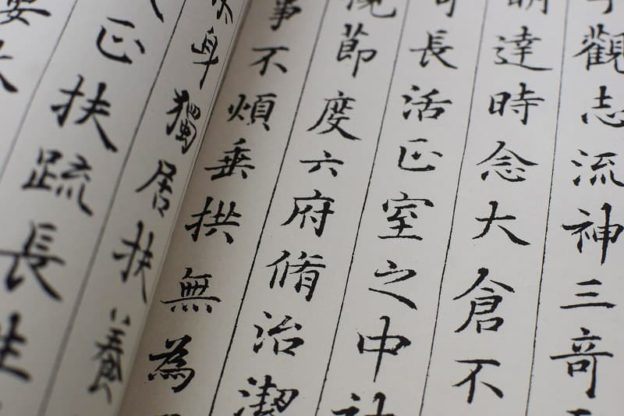 觀志流神三奇
達時念大倉不
長活正室之中神
節度六府脩治潔
事不煩垂拱無為
身獨居扶養
正扶疏長生